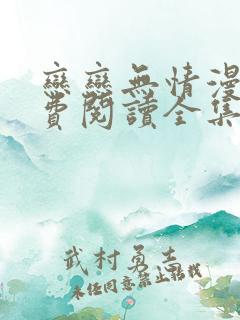 戀戀無情漫
費閱讀全集
武村勇士
未经同意禁止转载